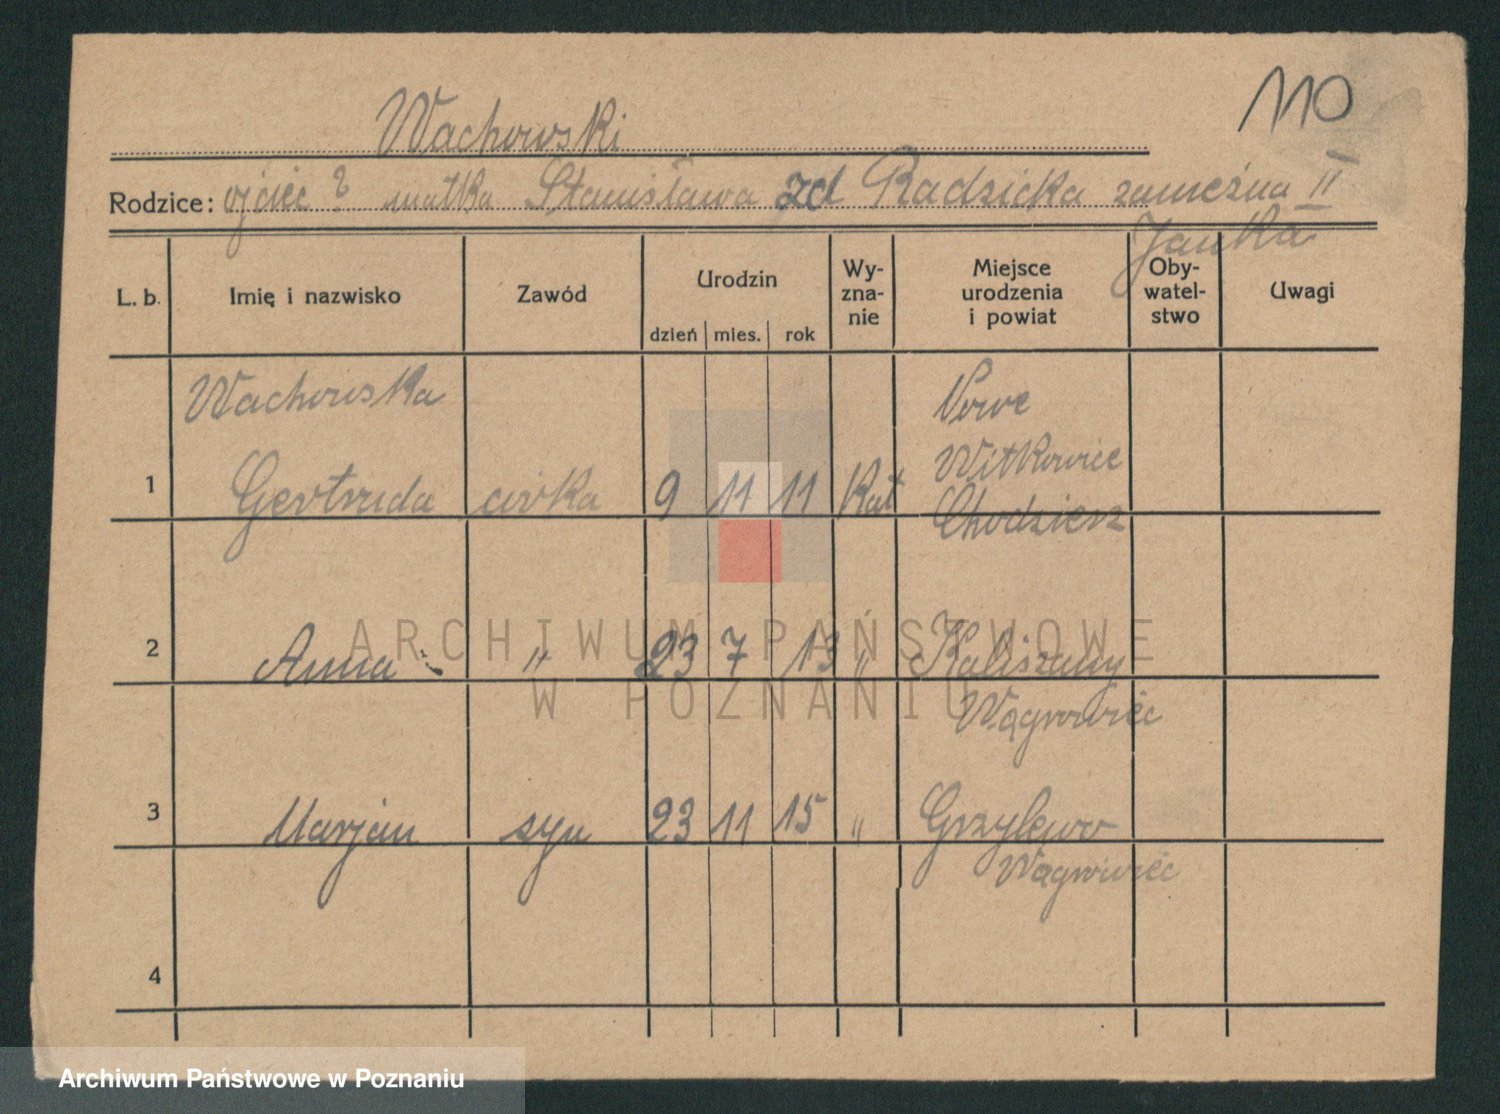 110
Wachowski
Rodzice: ojciec ? matka Stanisława zd Radzicka zamężna II
Janka
L. b. Imię i nazwisko Zawód Urodzin dzień mies. rok Wy-zna-nie Miejsce urodzenia i powiat Oby-watel-stwo Uwagi
Wachowska Nowe
Witkowice
1 Gertruda córka 9 11 11 Kat Chodzież
2 Anna " 23 7 13 " Kaliszany
Wągrowiec
3 Marjan syn 23 11 15 " Grzylewo
Wągrowiec
4
ARCHIWUM PAŃSTWOWE
W POZNANIU
Archiwum Państwowe w Poznaniu